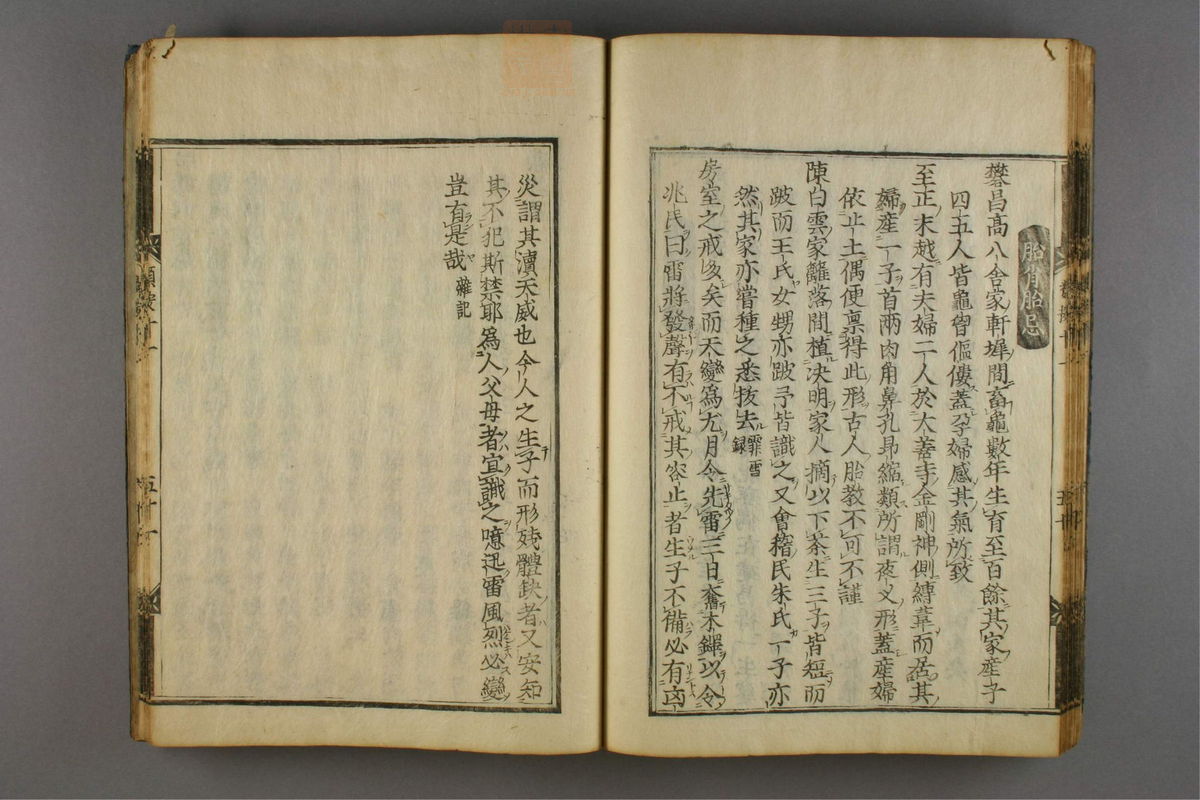 胎育胎忌
礬昌高八舍家軒墀間畜龜數年生育至百餘其家産子
四五人皆龜胷傴僂蓋孕婦感其氣所致
至正末越有夫婦二人於大善寺金剛神側縛葦而居其
婦産一子首兩肉角鼻孔昻縮類所謂夜叉形蓋産婦
依止土偶便稟得此形古人胎教不可不謹
陳白雲家籬落間植决明家人摘以下茶生三子皆短而
跛而王氏女甥亦跛予皆識之又會稽民朱氏一子亦
然其家亦嘗種之悉拔去 霏雪録
房室之戒多矣而天變爲尤月令先雷三日奮木鐸以令
兆民曰雷將發聲有不戒其容止者生子不備必有凶
災謂其瀆天威也今人之生子而形殘體缺者又安知
其不犯斯禁耶爲人父母者宜識之噫迅雷風烈必變
豈有是哉 襍記
五十一